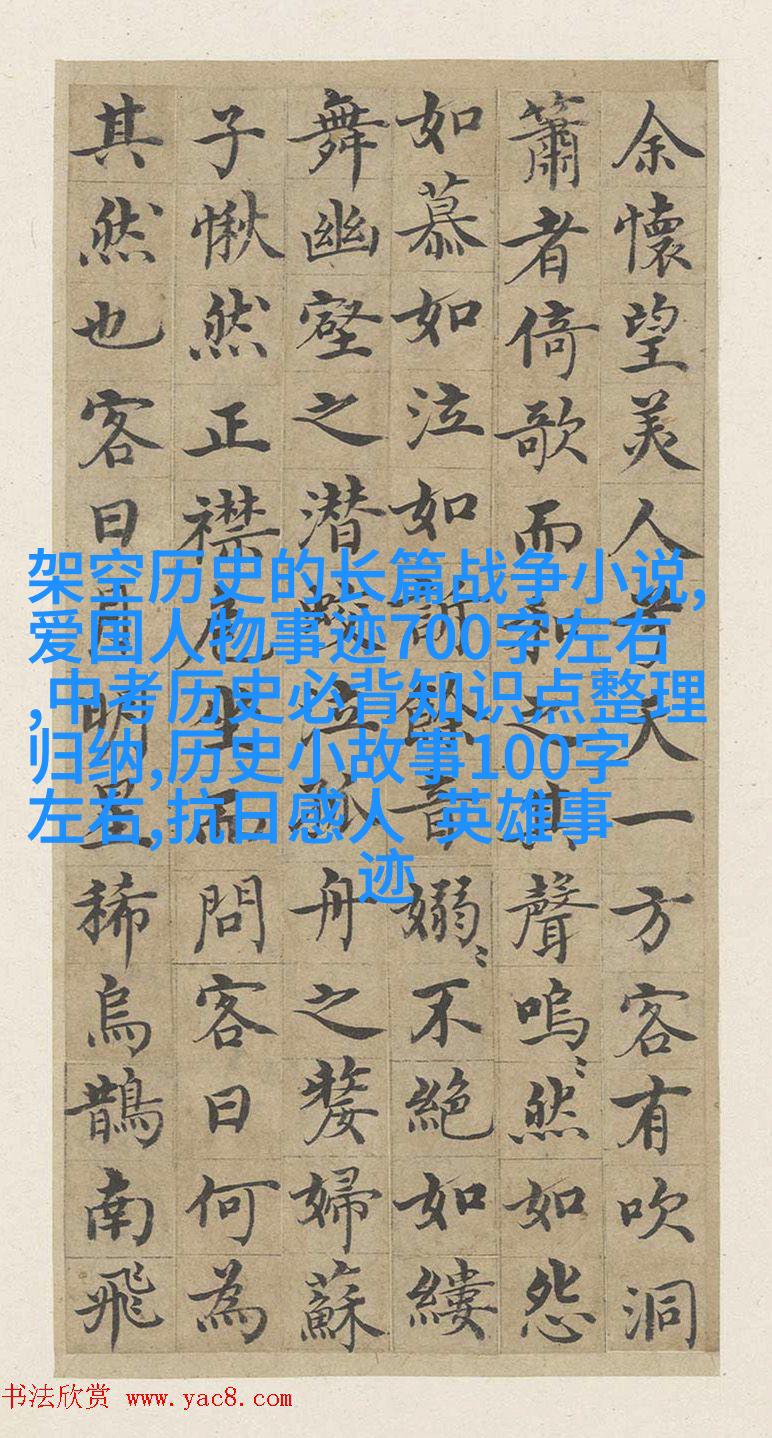 余懷望美人兮天一方客有吹洞
簫者倚歌而和之其聲嗚〻然如怨
如慕如泣如訴餘音嫋〻不絕如縷
舞幽壑之潜蛟泣孤舟之嫠婦蘇
子愀然正襟危坐而問客曰何為
其然也客曰月明星稀烏鵲南飛
架空历史的长篇战争小说,
爱国人物事迹700字左右
,中考历史必背知识点整理
归纳,历史小故事100字
左右,抗日感人 英雄事
迹
书法欣赏 www.yac8.com